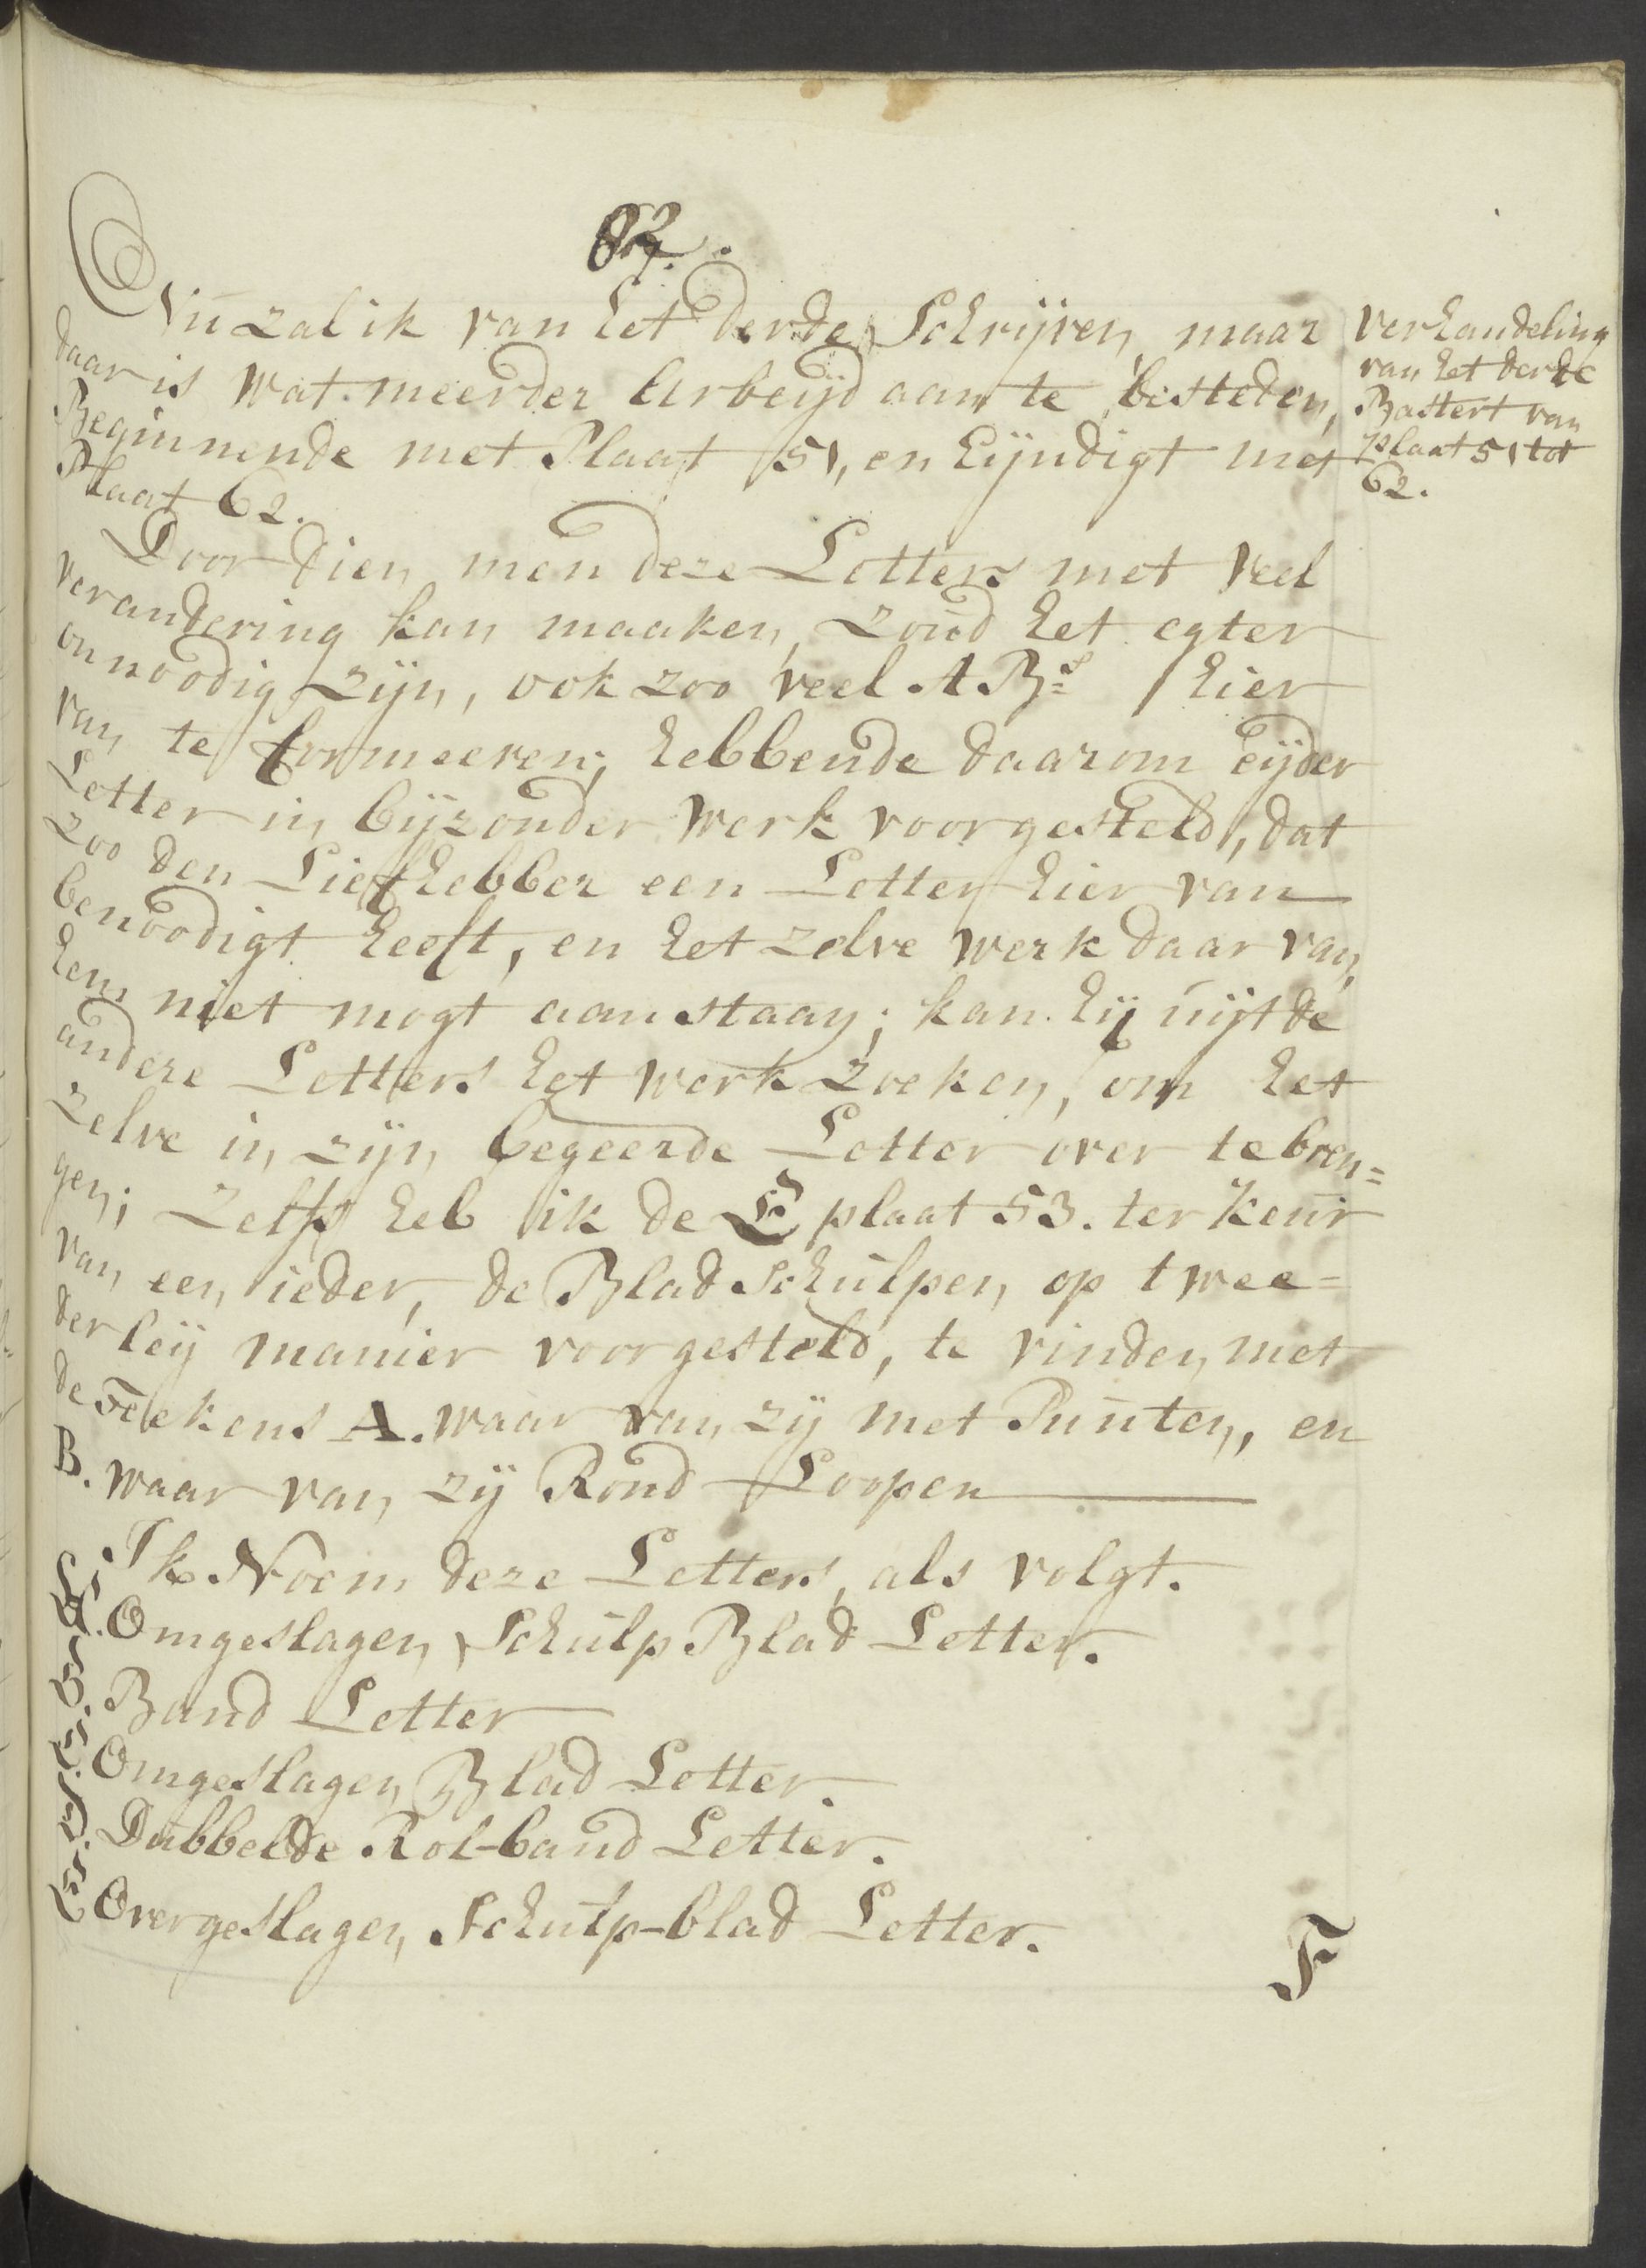 Nu zal ik van het derde Schrijven, maar
daar is wat meerder Arbeijd aan te besteden,
Beginnende met Plaat 51, en Eijndigt met
Plaat 62.
verhandeling
van het derde
Bastert van
plaat 51 tot
62.
Door dien men deze Letters met veel
verandering kan maaken, zoud het egter
onnoodig zijn, ook zoo veel A B=s hier
van te formeeren; hebbende daarom eijder
Letter in bijzonder werk voorgesteld, dat
zoo den Liefhebber een Letter hier van
benoodigt heeft, en het zelve werk daar van
hem niet mogt aan staan; kan hij uijt de
andere Letters het werk zoeken, om het
zelve in zijn begeerde Letter over te bren=
gen; zelfs heb ik de plaat 53. ter keur
van een ieder, de Blad Schulpen op twee=
derleij manier voorgesteld, te vinden met
de Teekens A. waar van zij met Punten, en
B. waar van zij Rond Loopen
Ik Noem deze Letters, als volgt.
A. Omgeslagen Schulp Blad Letter.
B. Band Letter
C. Omgeslagen Blad Letter.
D. Dubbelde Rol-band Letter.
E. Overgeslagen Schulp-blad Letter.
F